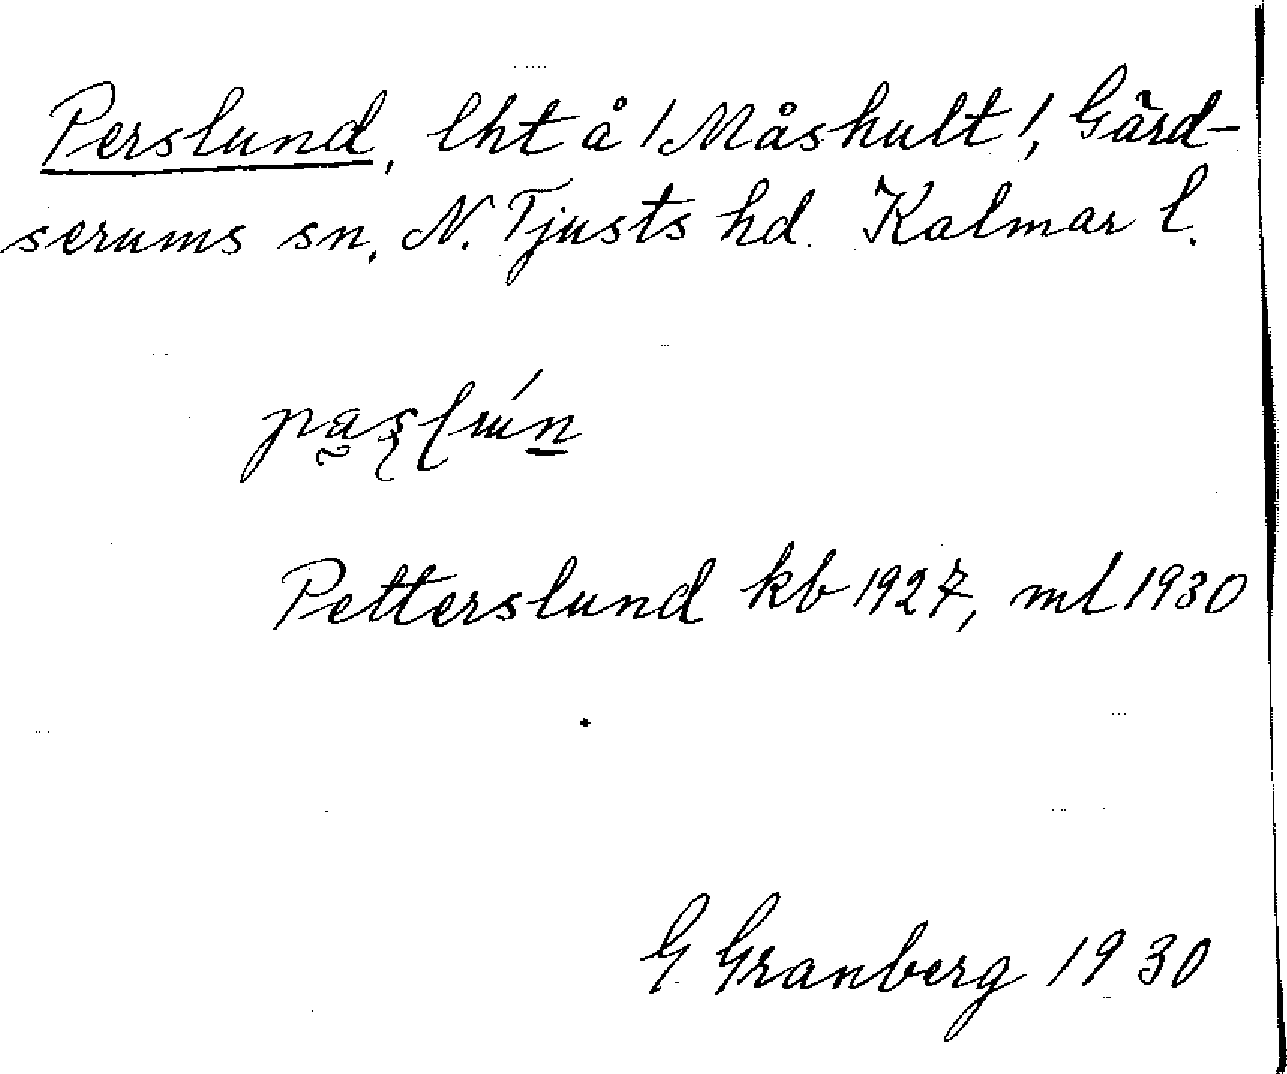 Perslund, lht å /Måshult/, Gärd-
serums sn, N. Tjusts hd. Kalmar l.
Petterslund kb 1927, ml 1930
G Granberg 1930